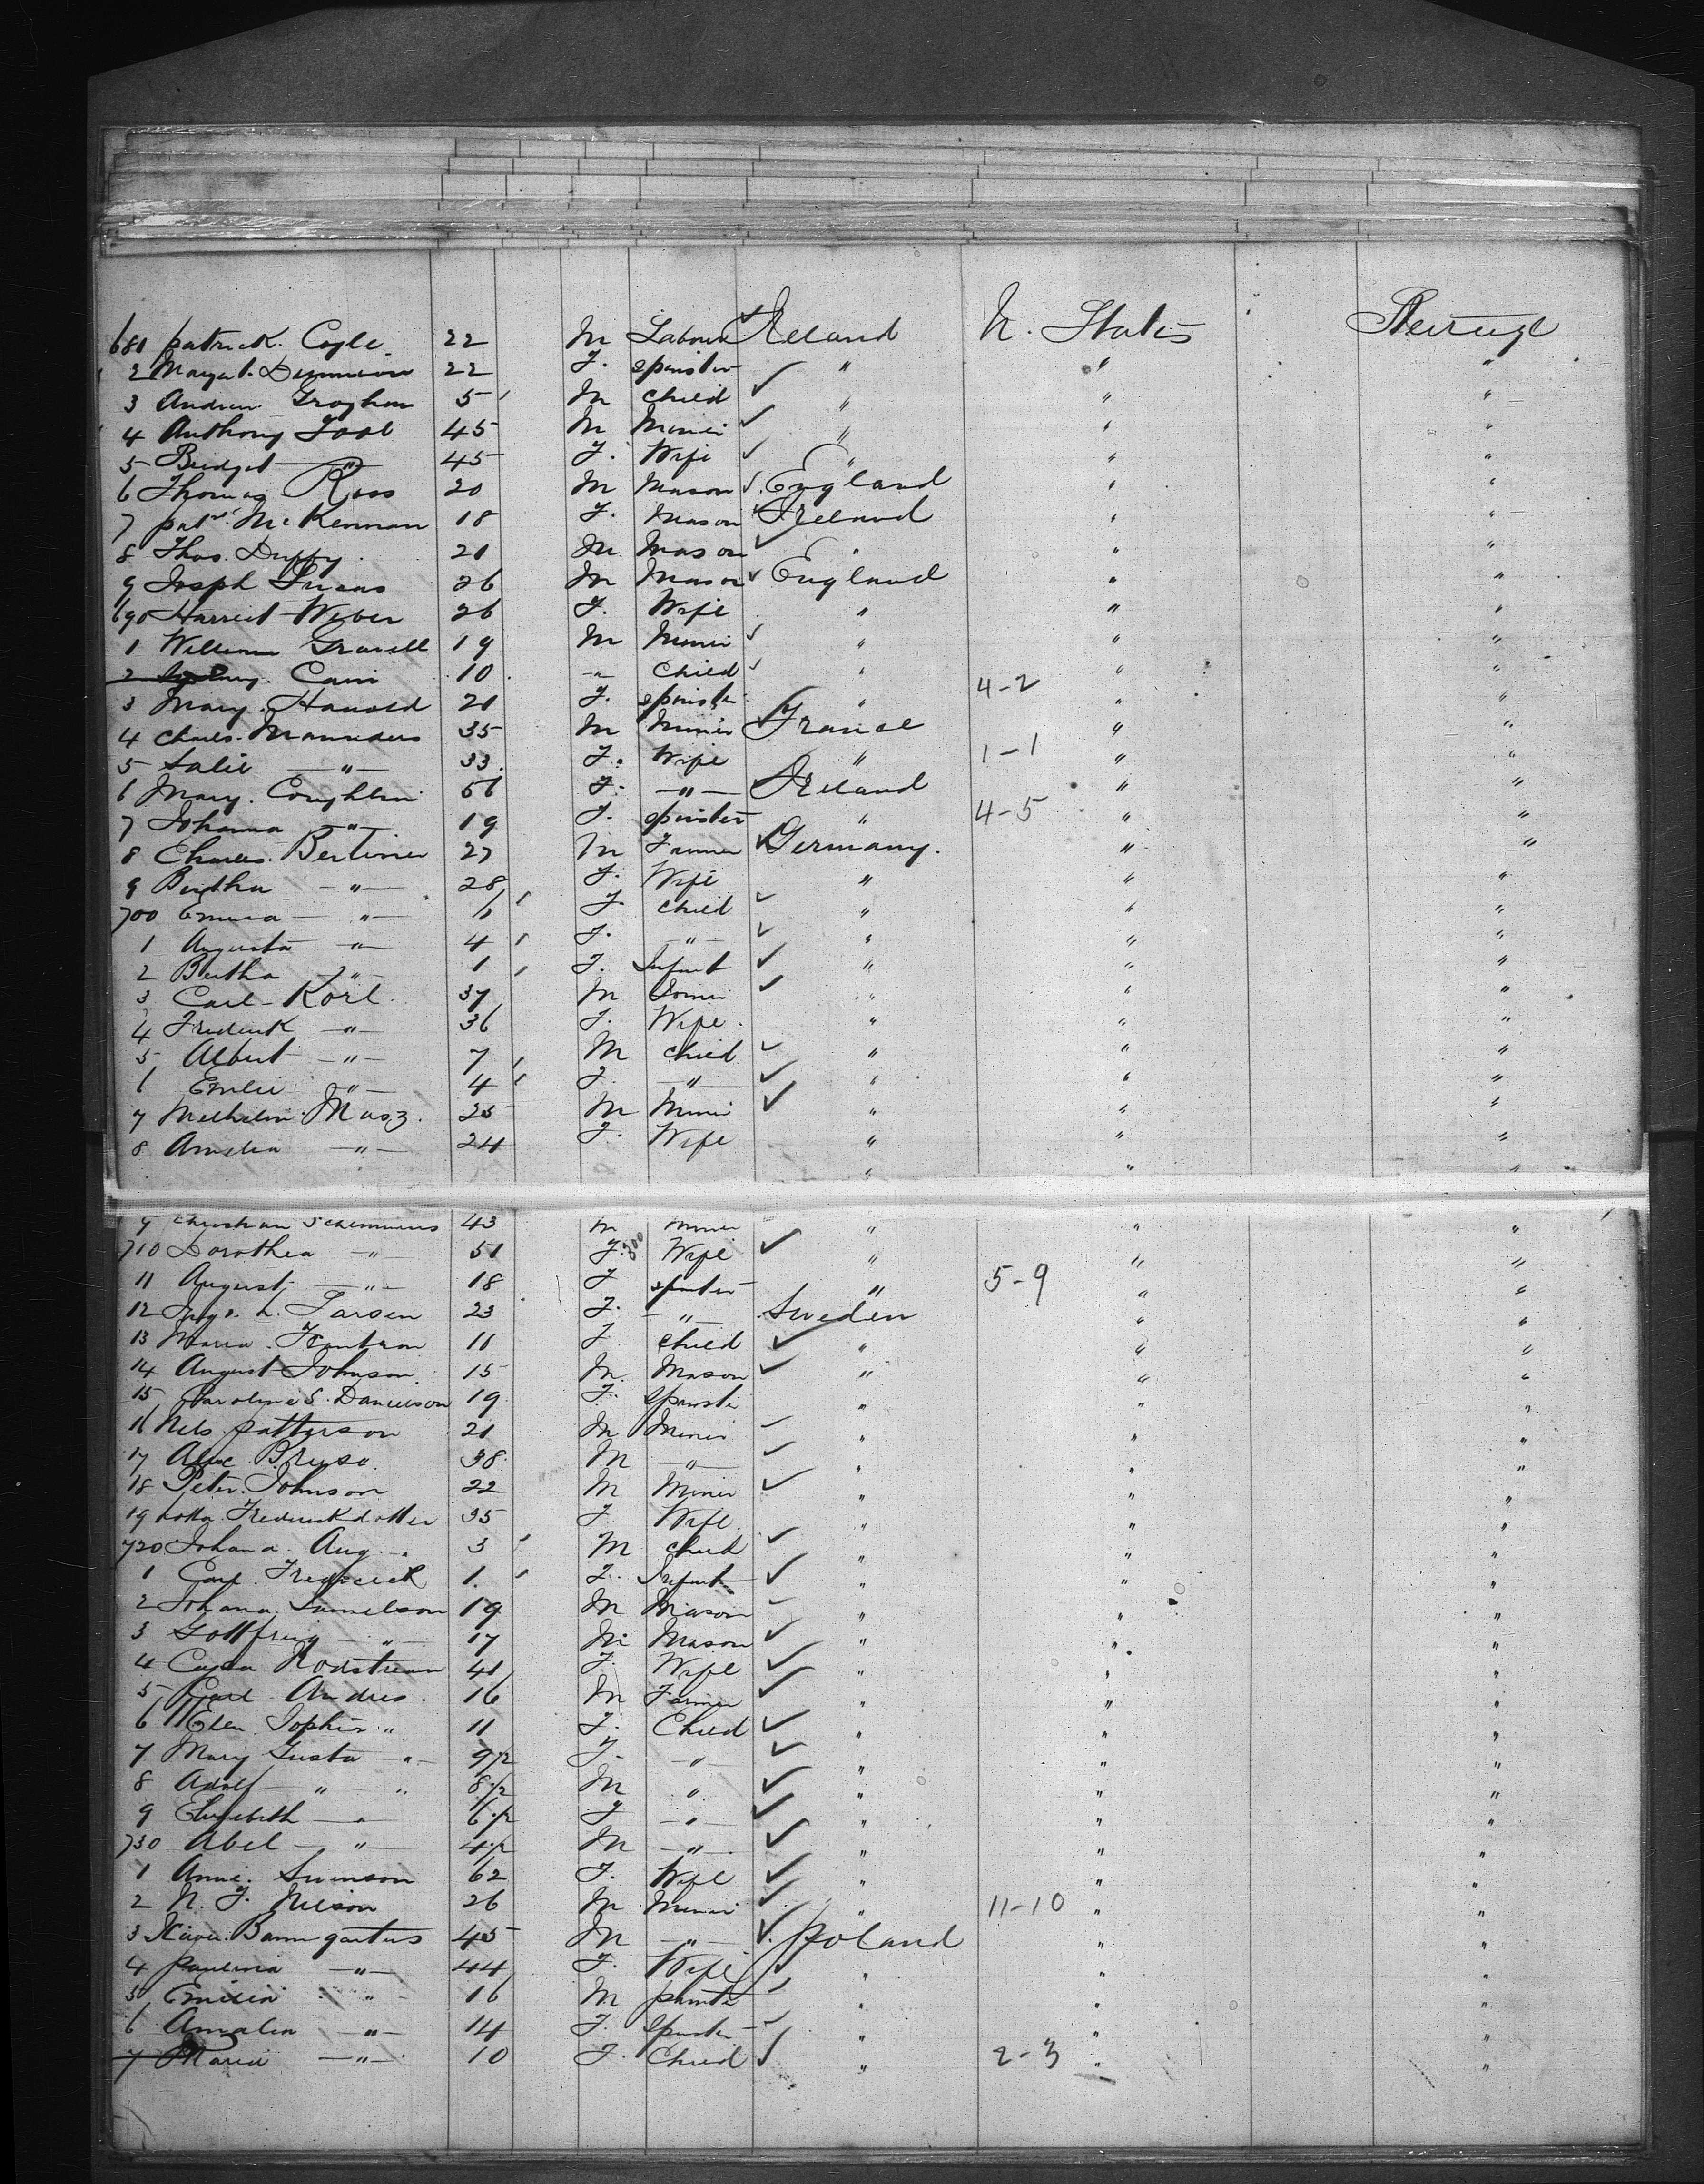 681 patrick Coyle 22 M Labourer Ireland U. States Steerage
2 Margat. 22 F. spinster " " "
3 Andrew Groghan 5 M child " " "
4 Anthony Tool 45 M Miner " " "
5 Bridget " 45 F. Wife " " "
6 Thomas Ross 20 M Mason England " "
7 patk. McKennan 18 F. Mason Ireland " "
8 Thos. Duffy 21 M Mason " " "
9 Joseph Lucas 26 M Mason England " "
690 Harriet Weber 26 F. Wife " " "
1 William Gravell 19 M Miner " " "
2 Cain 10 " Child " "
4-2
3 Mary Harrold 21 F. spinster " " "
4 Charles 35 M Miner France " "
1-1
5 Salie " 33 F. Wife " " "
6 Mary. Coughlin 56 F. " Ireland " "
7 Johanna " 19 F. spinster " 4-5 " "
8 Charles Berliner 27 M Farmer Germany. " "
9 Bertha " 28 F. Wife " " "
700 Emma " 6 F child " " "
1 Augusta " 4 F. " " " "
2 Bertha " 1 F. Infant " " "
3 Carl Korl 37 M " " "
4 Frederick " 36 F. Wife " " "
5 Albert " 7 M child " " "
6 Emilie " 4 F. " " " "
7 Wilhelm Masz. 25 M Miner " " "
8 Amelia " 24 F. Wife " " "
" " "
9 Christian 43 M miner " " "
710 Dorothea " 51 F. Wife " " "
11 August " 18 F spinster " 5-9 " "
12 L. Larsen 23 F. " Sweden " "
13 Maria 11 F child " " "
14 August Johnson 15 M. Mason " " "
15 Caroline S. Danielson 19 F. Spinster " " "
16 Nels patterson 21 M Miner " " "
17 38 M " " " "
18 Peter Johnson 22 M Miner " " "
19 Lotta Frederickdotter 35 F. Wife " " "
720 Johan a. Aug. " 3 M child " " "
1 Carl Frederick 1 F. Infant " " "
2 Johana Samelson 19 M Mason " " "
3 " 17 M Mason " " "
4 41 F. Wife " " "
5 Carl Andres 16 M Farmer " " "
6 Elen Sophia " 11 F. Child " " "
7 Mary Gusta " 9 1/2 F. " " " "
8 Adolf " " 8 1/2 M " " " "
9 Elizebeth " 6 1/2 F " " " "
730 Abel " 4 1/2 M " " " "
1 Anne Swenson 62 F. Wife " " "
2 N. J. Nelson 26 M Miner " 11-10 " "
3 Baumgartus 45 M " poland " "
4 paulina " 44 F. Wife " " "
5 Emilia " 16 M " " "
6 Amalia " 14 F. Spinster " " "
7 Maria " 10 F. Child " 2-3 " "